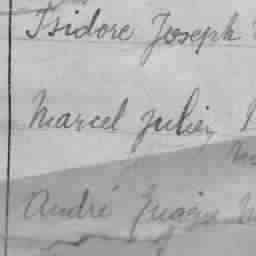 Isidore Joseph
Marcel Julien
André